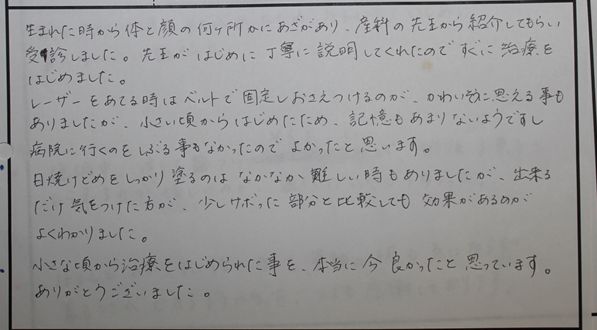 生まれた時から体と顔の何ヶ所かにあざがあり、産科の先生から紹介してもらい
受診しました。先生がはじめに丁寧に説明してくれたのですぐに治療を
はじめました。
レーザーをあてる時はベルトで固定しおさえつけるのが、かわいそうに思える事も
ありましたが、小さい頃からはじめたため、記憶もあまりないようですし
病院に行くのをしぶる事もなかったのでよかったと思います。
日焼けどめをしっかり塗るのはなかなか難しい時もありましたが、出来る
だけ気をつけた方が、少しサボった部分と比較しても効果があるのが
よくわかりました。
小さな頃から治療をはじめられた事を、本当に今良かったと思っています。
ありがとうございました。